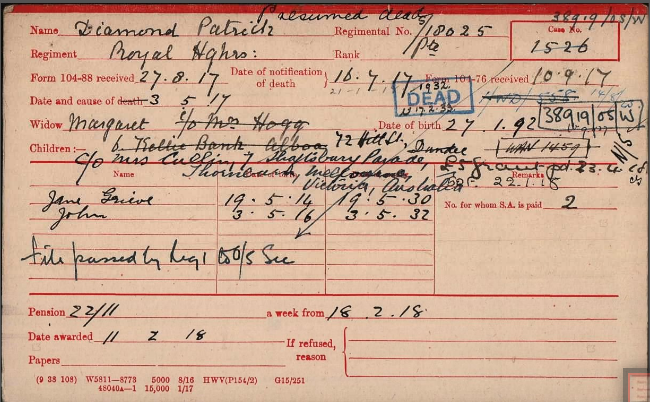 Presumed dead 3899/05/W
Name Diamond Patrick Regimental No. S/18025 Case No.
Regiment Royal Hghrs: Rank Pte 1526
Form 104-88 received 27.8.17 Date of notification of death 16.7.17 Form 104-76 received 10.9.17
1932
DEAD
Date and cause of death 3 5 17
3899/05/W
Widow Margaret c/o Mrs Hogg Date of birth 27 1.92
Children:— Bank 72 Hill St., Dundee
c/o Mrs Shaftsbury Parade,
Name Thornbury Melbourne, Remarks
Victoria, Australia 22.1.18
Jane Grieve 19.5.14 19.5.30 No. for whom S.A. is paid 2
John 3.5.16 3.5.32
File passed by Regl to O/S Sec
Pension 22/11 a week from 18.2.18.
Date awarded 11 2 18 If refused, reason
Papers
(9 38 108) W5811—8773 5000 8/16 HWV(P154/2) G15/251
48040a—1 15,000 1/17